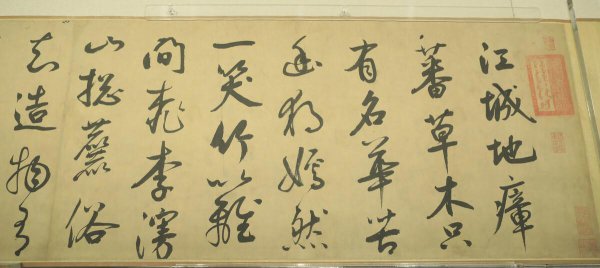 江城地瘴
蕃草木只
有名華苦
幽獨嫣然
一笑竹籬
間桃李漫
山揔麤俗
知造物有